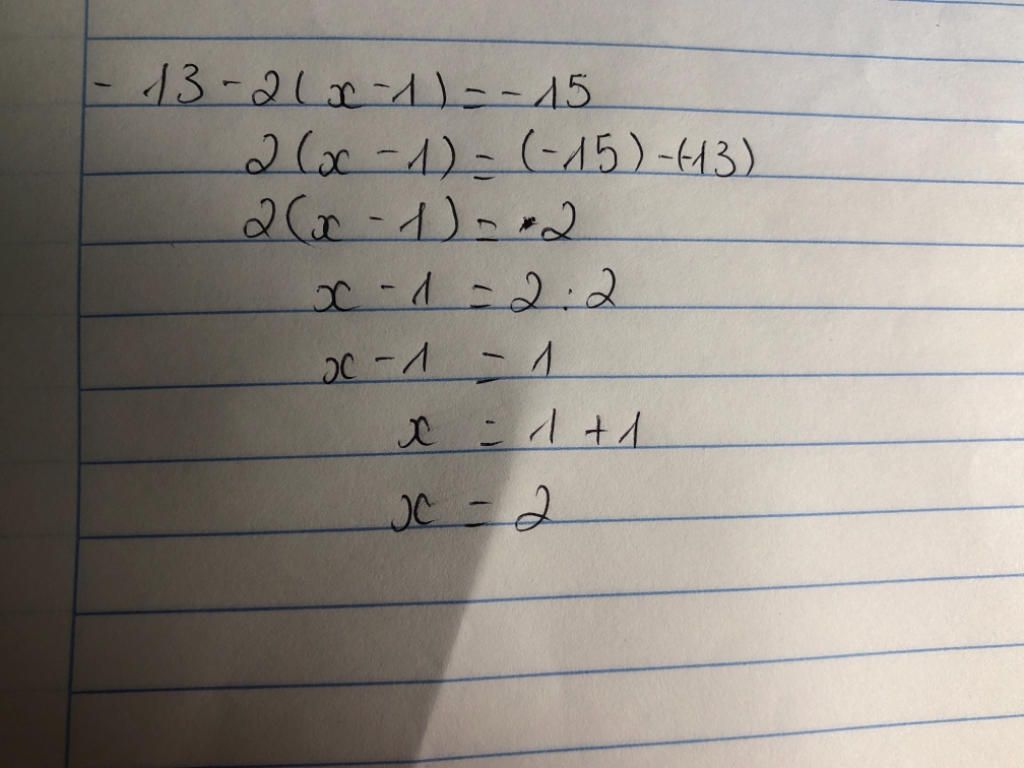 - 13 - 2(x - 1) = - 15
2(x - 1) = (-15) - (-13)
2(x - 1) = -2
x - 1 = 2 : 2
x - 1 = 1
x = 1 + 1
x = 2